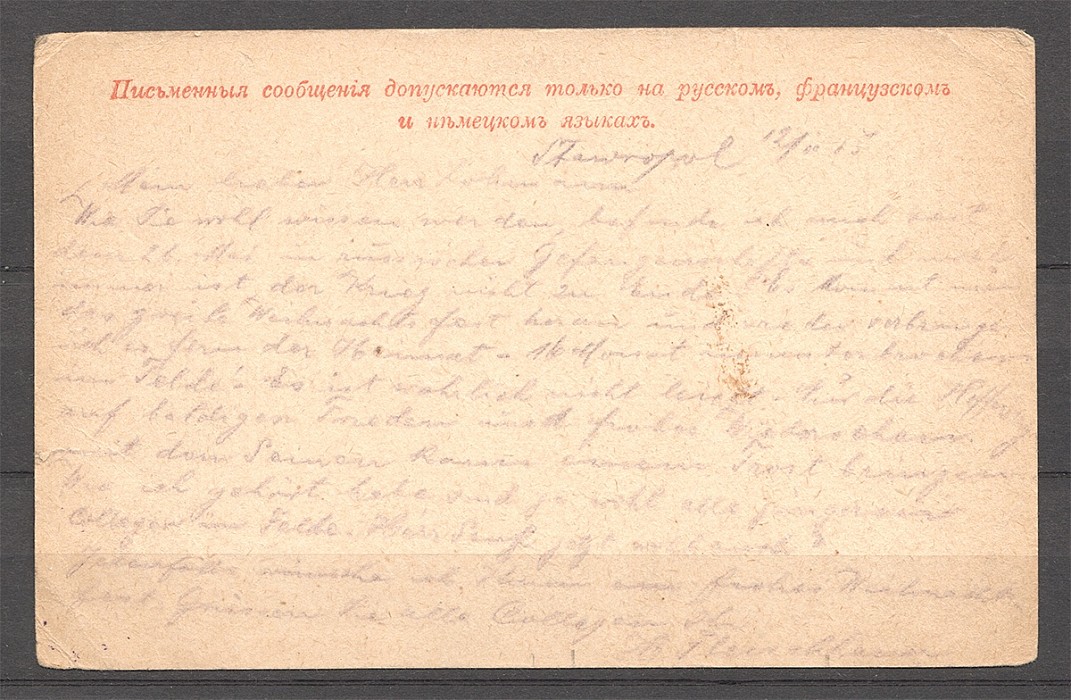 Письменныя сообщенія допускаются только на русскомъ, французскомъ
и нѣмецкомъ языкахъ.
Stawropol 12/
Mein lieber Herr
Wie Sie wohl wissen werden, befinde ich mich seit
dem 26. Mai in russischer Gefangenschaft und noch
immer ist der Krieg nicht zu Ende. Es kommt nun
das zweite Weihnachtsfest heran und wieder verbringe
ich es fern der Heimat - 16 Monat ununterbrochen
im Felde. Es ist wahrlich nicht leicht. Nur die Hoffnung
auf baldigen Frieden und frohes Wiedersehen
mit den Seinen kann einem Trost bringen.
Wie ich gehört habe sind ja wohl alle jüngeren
Collegen im Felde. Herr jetzt auch
Jedenfalls wünsche ich Ihnen ein frohes Weihnachts
fest. Grüssen Sie alle Collegen Ihr